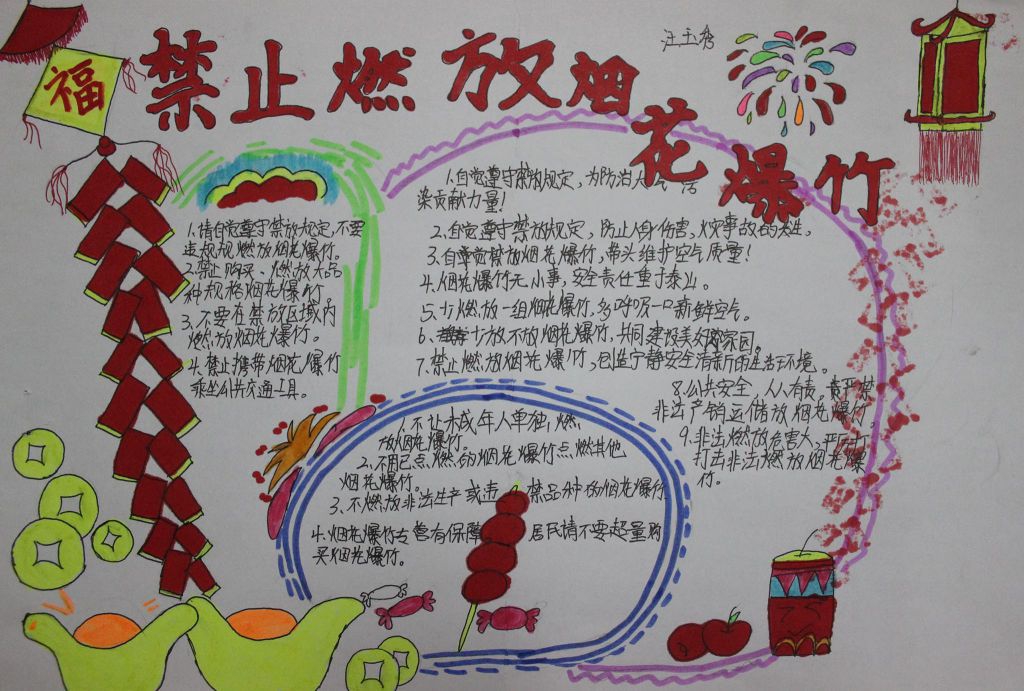 福
禁止燃放烟花爆竹
汪玉秀
1.请自觉遵守禁放规定,不要
违规规燃放烟花爆竹。
2.禁止购买、燃放大品
种规格烟花爆竹
3.不要在禁放区域内
燃放烟花爆竹。
4.禁止携带烟花爆竹
乘坐公共交通工具。
1.自觉遵守禁放规定,为防治大气污
染贡献力量!
2.自觉遵守禁放规定,防止人身伤害,火灾事故的发生,
3.自觉禁放烟花爆竹,带头维护空气质量!
4.烟花爆竹无小事,安全责任重于泰山。
5.少燃放一组烟花爆竹,多呼吸一口新鲜空气。
6.少放不放烟花爆竹,共同建设美好家园。
7.禁止燃放烟花爆竹,创造宁静安全清新的生活环境。
8.公共安全,人人有责。严禁
非法产销运储放烟花爆竹,
9.非法燃放危害大,严厉打
打击非法燃放烟花爆
竹。
1.不让未成年人单独,燃
放烟花爆竹。
2.不用已点燃的烟花爆竹点燃其他
烟花爆竹。
3.不燃放非法生产或违禁品种的烟花爆竹
4.烟花爆竹专营有保障 居民请不要超量购
买烟花爆竹。